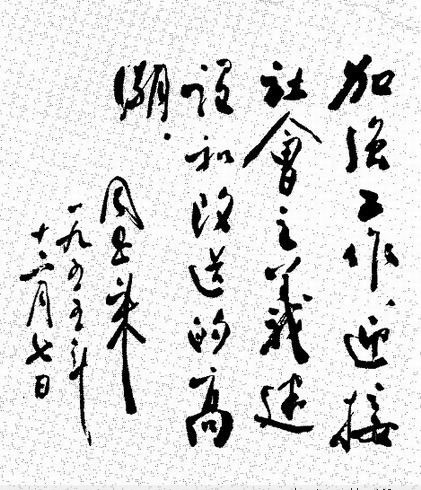 加強工作，迎接
社會主義建
設和改造的高
潮.
周恩来
一九五五年
十二月七日